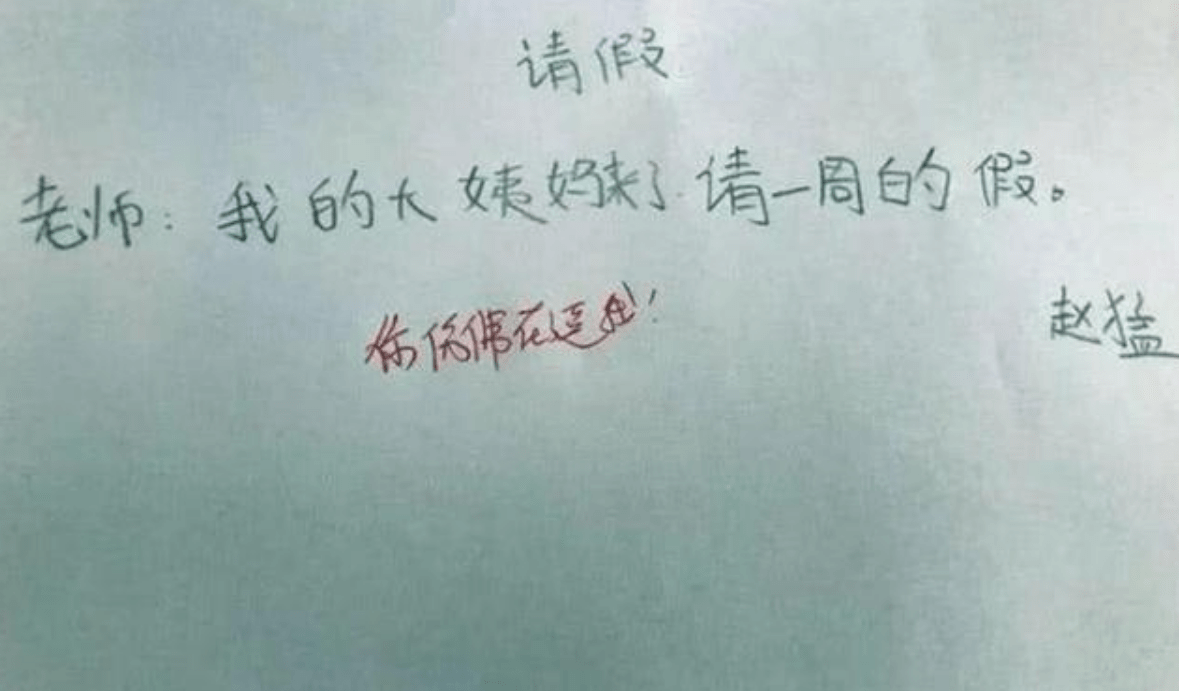 请假
老师：我的大姨妈来了请一周的假。
你在逗我！
赵猛